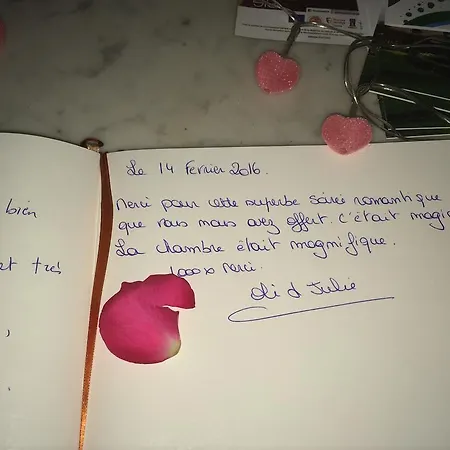 bien
et très
Le 14 Février 2016.
Merci pour cette superbe soirée romantique
que vous nous avez offert. C'était magi
La chambre était magnifique.
1000 x merci.
Oli & Julie